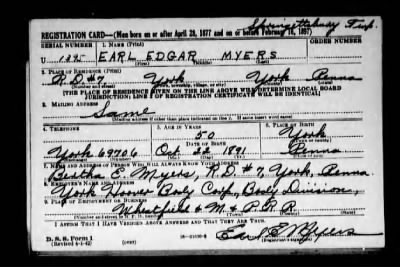 Springettsbury Twp.
REGISTRATION CARD—(Men born on or after April 28, 1877 and on or before February 16, 1897)
SERIAL NUMBER 1. NAME (Print) ORDER NUMBER
U 1395 EARL EDGAR MYERS
(First) (Middle) (Last)
2. PLACE OF RESIDENCE (Print)
R.D. #7, York York Penna
(Number and street) (Town, township, village, or city) (County) (State)
[THE PLACE OF RESIDENCE GIVEN ON THE LINE ABOVE WILL DETERMINE LOCAL BOARD
JURISDICTION; LINE 2 OF REGISTRATION CERTIFICATE WILL BE IDENTICAL]
3. MAILING ADDRESS
Same
[Mailing address if other than place indicated on line 2. If same insert word same]
4. TELEPHONE 5. AGE IN YEARS 6. PLACE OF BIRTH
50 York
DATE OF BIRTH
York 69706 Oct. 22 1891 Penna
7. NAME AND ADDRESS OF PERSON WHO WILL ALWAYS KNOW YOUR ADDRESS
Bertha E. Myers, R.D. #7, York, Penna
8. EMPLOYER'S NAME AND ADDRESS
York Hoover Body Corp., Body Division,
9. PLACE OF EMPLOYMENT OR BUSINESS
Wheatfield & M. & P. R.R
I AFFIRM THAT I HAVE VERIFIED ABOVE ANSWERS AND THAT THEY ARE TRUE.
D. S. S. Form 1
(Revised 4-1-42) (over)
Earl E. Myers
(Registrant's signature)